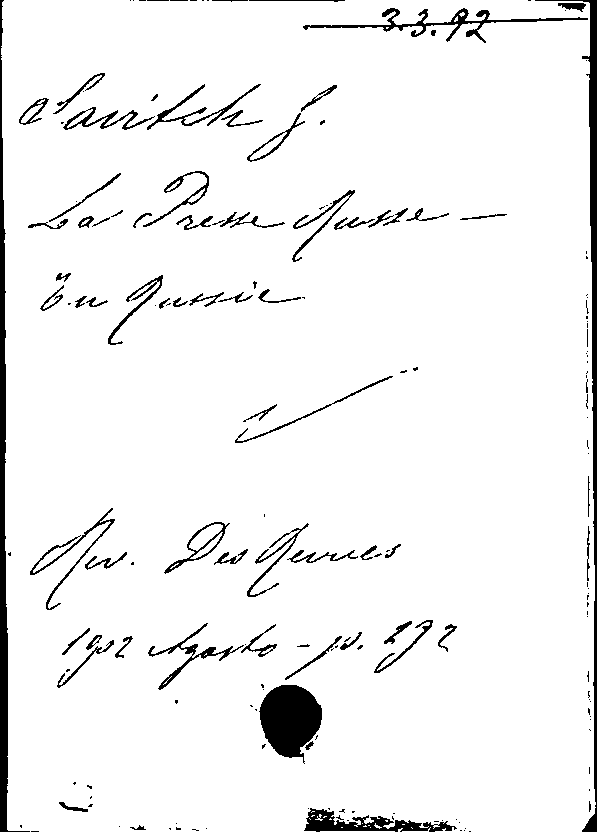 3.3.92
Savitch G.
La Presse Russe —
En Russie
Rev. Des Revues
1902 Agosto - p. 272